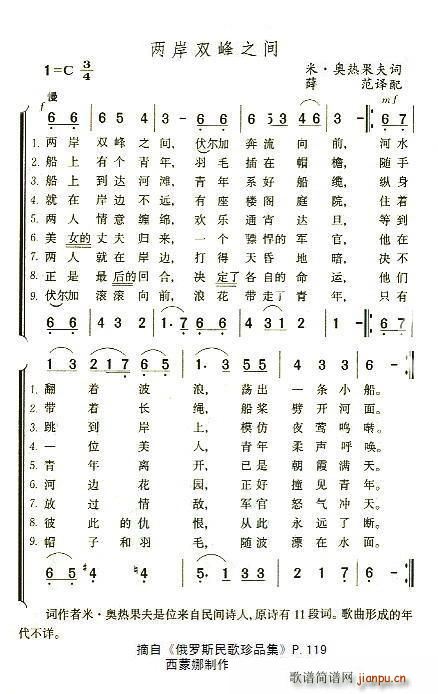 两岸双峰之间
1=C 3/4
米·奥热果夫词
薛 范译配
慢
f
mf
1. 两岸 双峰 之间, 伏尔加 奔流 向前, 河水
2. 船上 有个 青年, 羽毛 插在 帽檐, 随手
3. 船上 到达 河滩, 青年 系好 船缆, 纵身
4. 就在 岸边 不远, 有座 楼阁 庭院, 住着
5. 两人 情意 缠绵, 欢乐 通宵 达旦, 等到
6. 美 女的 丈夫 归来, 一个 骠悍的 军官, 他在
7. 两人 就在 岸边, 打得 天昏 地暗, 决不
8. 正是 最后的 回合, 决定了 各自的 命运, 他们
9. 伏尔加 滚滚 向前, 浪花 带走了 青年, 只有
1. 翻着波浪, 荡出一条小船。
2. 带着长绳, 船桨劈开河面。
3. 跳到岸上, 模仿夜莺鸣啭。
4. 一位美人, 青年柔声呼唤。
5. 青年离开, 已是朝霞满天。
6. 河边花园, 正好撞见青年。
7. 放过情敌, 军官怒气冲天。
8. 彼此的仇恨, 从此永远了断。
9. 帽子和羽毛, 随波漂在水面。
词作者米·奥热果夫是位来自民间诗人,原诗有11段词。歌曲形成的年
代不详。
摘自《俄罗斯民歌珍品集》P. 119
西蒙娜制作
歌谱简谱网
jianpu.cn